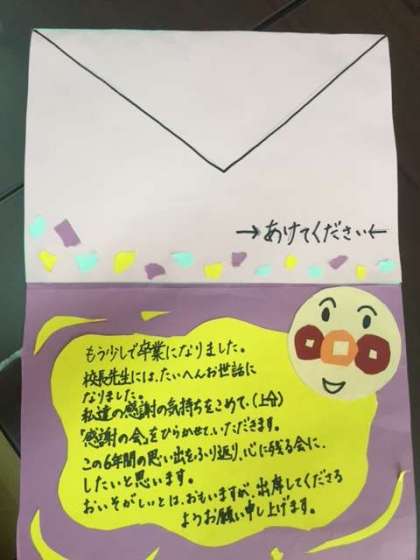 →あけてください←
もう少しで卒業になりました。
校長先生には、たいへんお世話に
なりました。
私達の感謝の気持ちをこめて、(上分)
「感謝の会」をひらかせていただきます。
この6年間の思い出をふり返り、心に残る会に、
したいと思います。
おいそがしいとは、おもいますが、出席してくださる
ようお願い申し上げます。